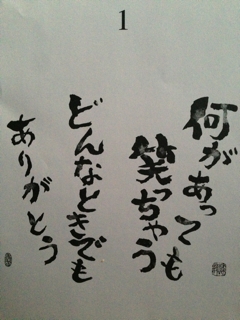 1
何があっても
笑っちゃう
どんなときでも
ありがとう